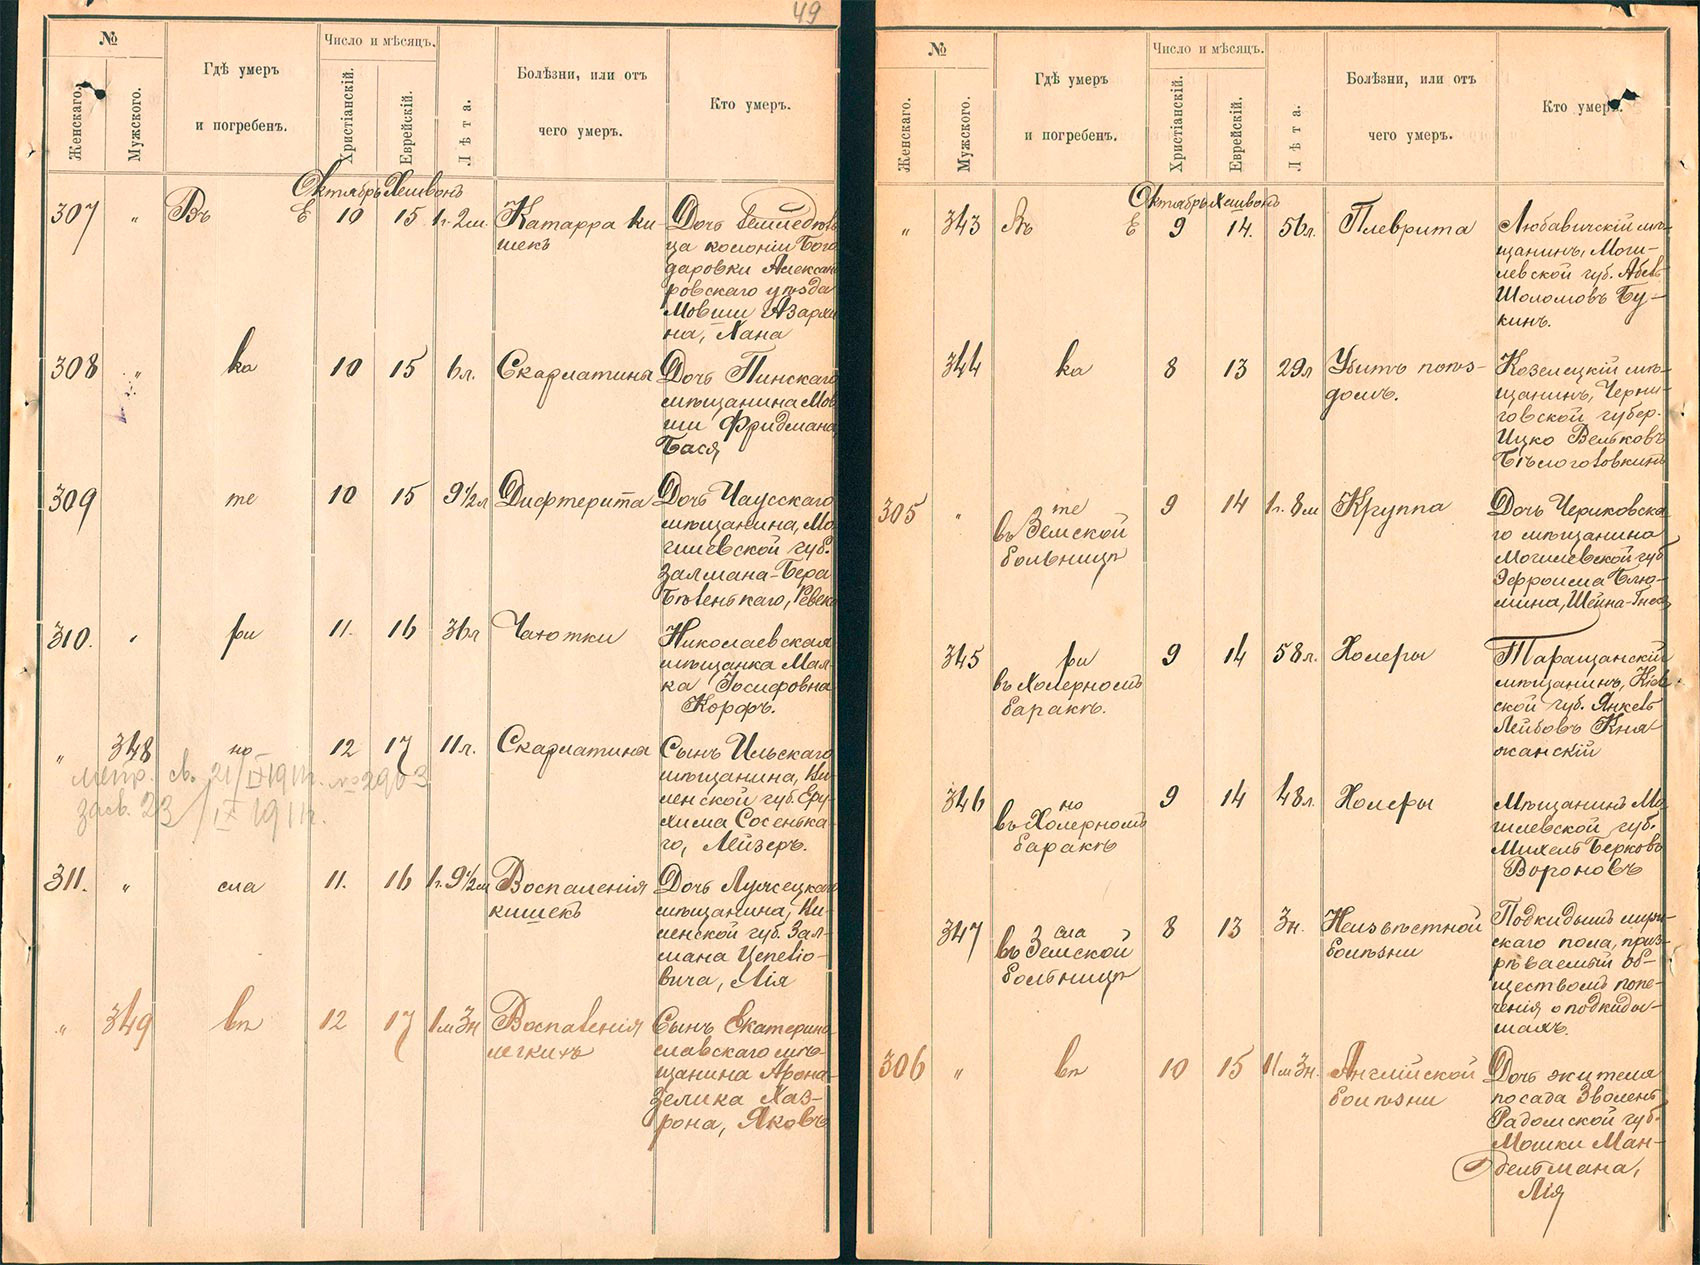 49
№
Женскаго.
Мужского.
Гдѣ умеръ
и погребенъ.
Число и мѣсяцъ.
Христіанскій.
Еврейскій.
Лѣта.
Болѣзни, или отъ
чего умеръ.
Кто умеръ.
Октябрь Хешвонъ
307 " Въ Е 10 15 1г. 2м. Катарра ки-
шекъ
Дочь земледѣль-
ца колоніи Бого
даровки Алексан
ровскаго уѣзда
Мовши Азархи
на, Хана
308 " ка 10 15 6л. Скарлатины
Дочь Пинскаго
мѣщанина Мов
ши Фридмана,
Бася
309 те 10 15 9½л Дифтерита
Дочь Чаусскаго
мѣщанина, Мо
гилевской губ.
Залмана-Бера
Бѣленькаго, Ревека
310. " ри 11. 16 36л Чахотки
Николаевская
мѣщанка Мал-
ка Іосифовна
Корфъ.
" 348 но 12 17 11л. Скарлатины
Сынъ Ильскаго
мѣщанина, Ви-
ленской губ. Еру-
хима Сосенька-
го, Лейзеръ.
метр. св. 21/IX 1911г. № 2903
засв. 23/IX 1911г.
311. " сла 11. 16 1г. 9½м Воспаленія
кишекъ
Дочь Лужецкаго
мѣщанина, Ви-
ленской губ. Зал-
мана Цепело-
вича, Лія
" 349 вѣ 12 17 1м 3н Воспаленія
легкихъ
Сынъ Екатерино
славскаго мѣ-
щанина Арона-
Зелика Хаз-
рона, Яковъ
№
Женскаго.
Мужского.
Гдѣ умеръ
и погребенъ.
Число и мѣсяцъ.
Христіанскій.
Еврейскій.
Лѣта.
Болѣзни, или отъ
чего умеръ.
Кто умеръ.
Октябрь Хешвонъ
" 343 Въ Е 9 14. 56л. Плеврита
Любавичскій мѣ-
щанинъ, Моги-
левской губ. Абель
Шоломовъ Бу-
кинъ.
344 ка 8 13 29л Убитъ поѣз-
домъ.
Козелецкій мѣ-
щанинъ, Черни-
говской губер.
Ицко Вельковъ
Бѣлоголовкинъ
305 " те
въ Земской
больницѣ
9 14 1г. 8м Круппа
Дочь Чериковска
го мѣщанина
Могилевской губ
Эфроима Блю-
мина, Шейна-Гнеся
345 ри
въ Холерномъ
баракѣ.
9 14 58л. Холеры
Таращанскій
мѣщанинъ, Кіев-
ской губ. Янкель
Лейбовъ Кня-
жанскій
346 но
въ Холерномъ
баракѣ
9 14 48л. Холеры
Мѣщанинъ Мо-
гилевской губ.
Михель Берковъ
Вороновъ
347 сла
въ Земской
больницѣ
8 13 3н. Неизвѣстной
болѣзни
Подкидышъ муж-
скаго пола, приз-
рѣваемый об-
ществомъ попе-
ченія о подкиды-
шахъ.
306 " вѣ 10 15 11м 3н. Англійской
болѣзни
Дочь жителя
посада Зволень
Радомской губ.
Мошки Ман-
дельтмана,
Лія